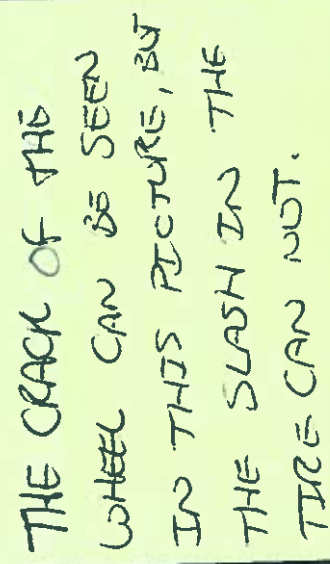 THE CRACK OF THE
WHEEL CAN BE SEEN
IN THIS PICTURE, BUT
THE SLASH IN THE
TIRE CAN NOT.